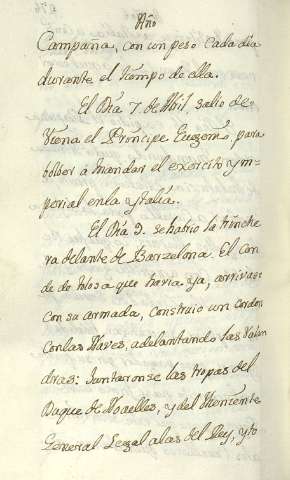 Año
Campaña, con un peso cada dia
durante el tiempo de ella.
El Dia 7. de Abril, salio de
Viena el Principe Eugenio para
bolber á mandar el exercito ym-
perial en la ytalia.
El Dia 9. se habrio la trinche
ra delante de Barzelona. El con
de de Tolosa que havia ya, arrivado
con su armada, construio un cordon
con las Naves, adelantando las Valan
dras: Juntaronse las tropas del
Duque de Noalles, y del theniente
General Legal a las del Rey, y to